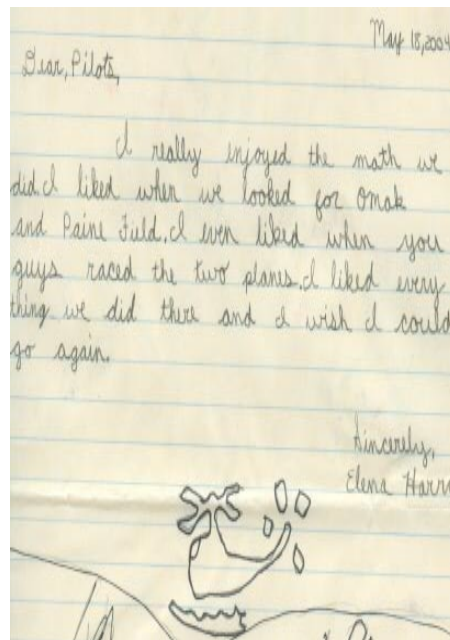 May 18, 2004
Dear, Pilots,
I really enjoyed the math we
did. I liked when we looked for Omak
and Paine Field. I even liked when you
guys raced the two planes. I liked every
thing we did there and I wish I could
go again.
Sincerely,
Elena